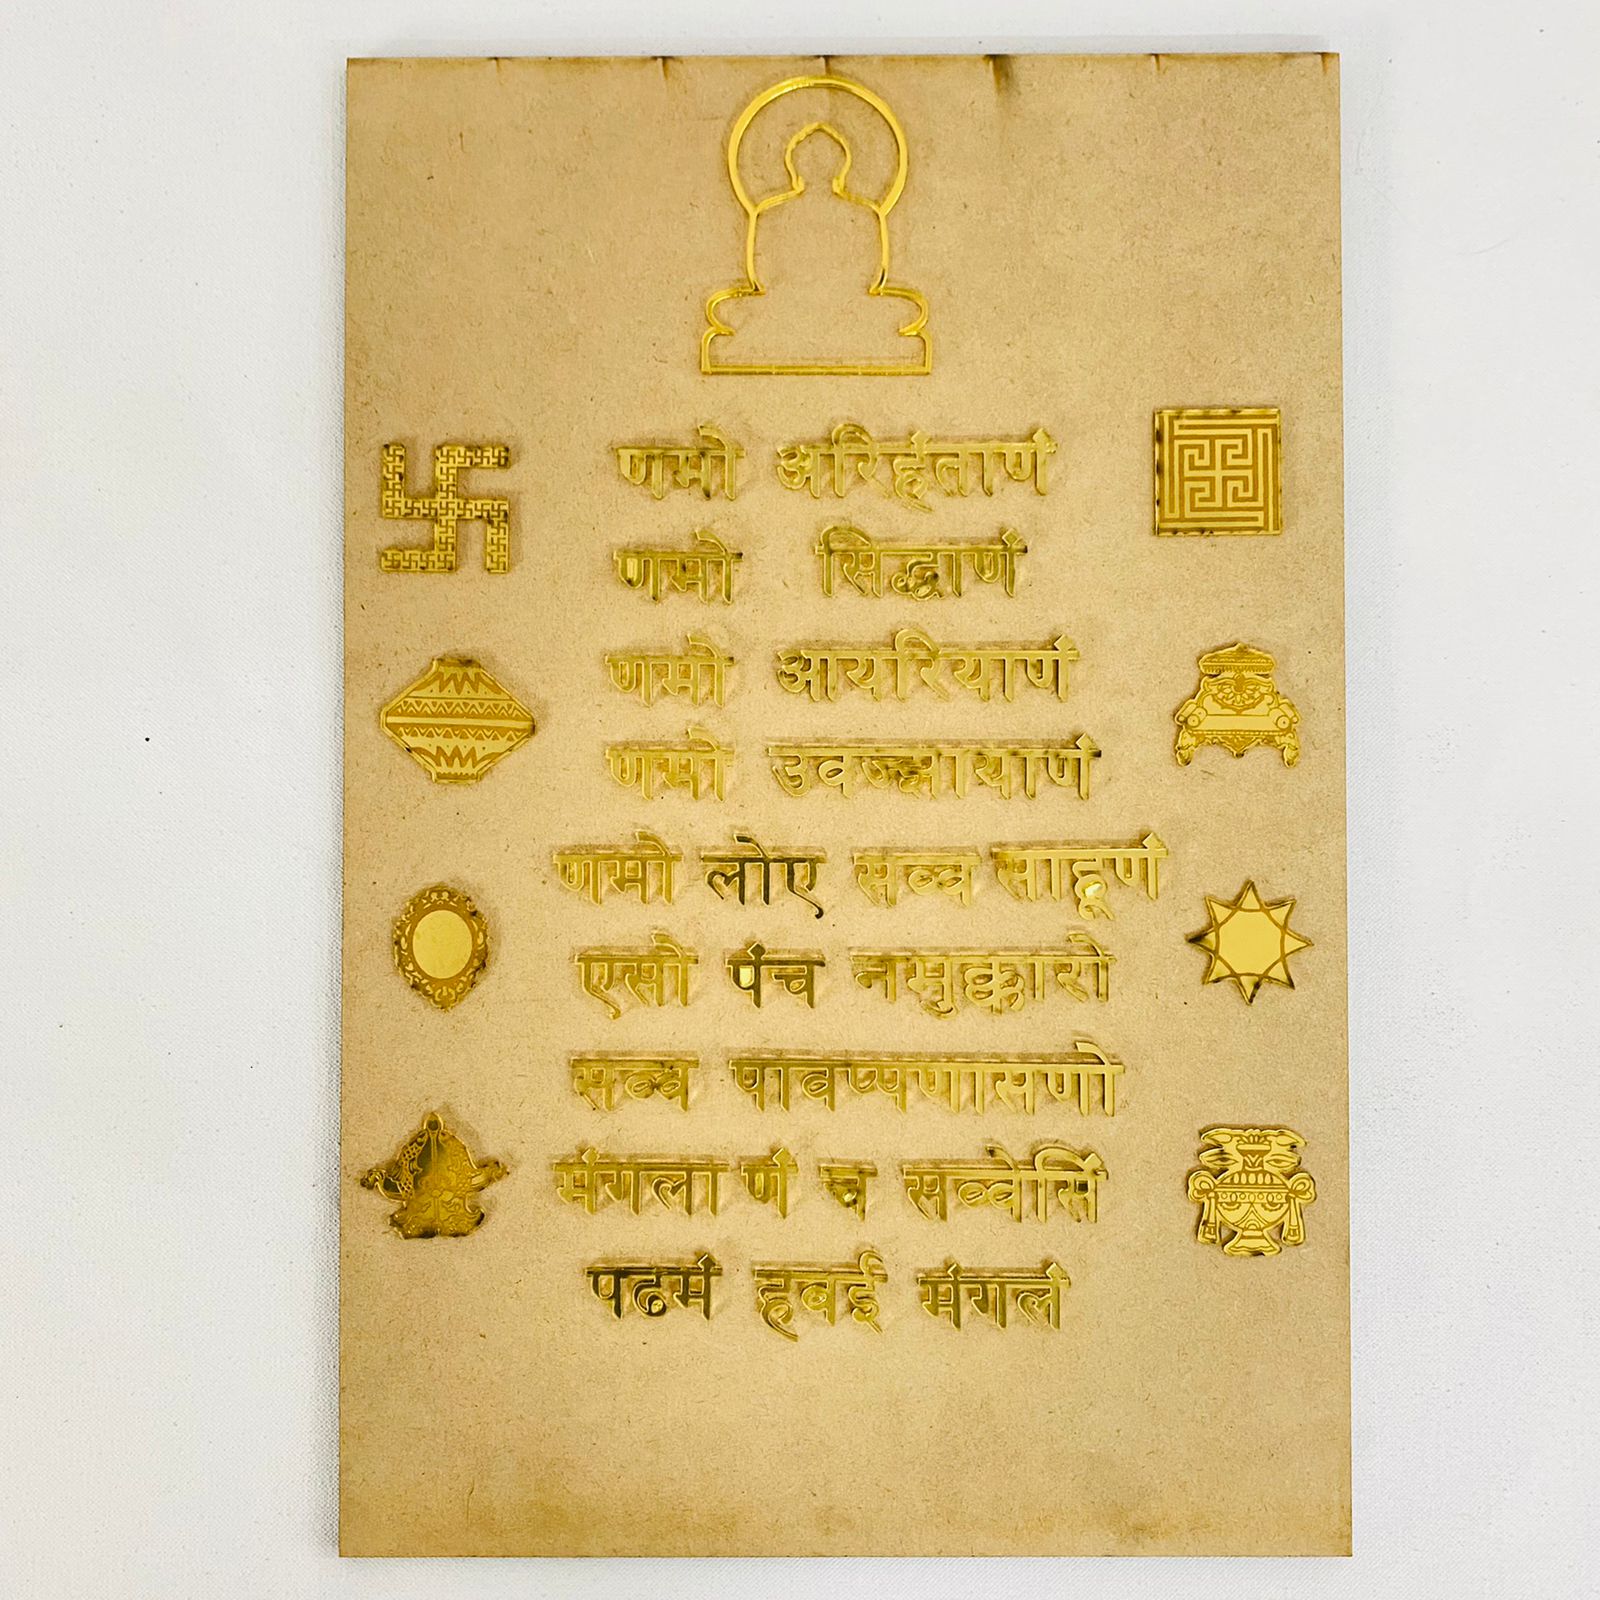 णमो अरिहंताणं
णमो सिद्धाणं
णमो आयरियाणं
णमो उवज्झायाणं
णमो लोए सव्व साहूणं
एसो पंच नमुक्कारो
सव्व पावप्पणासणो
मंगला णं च सव्वेसिं
पढमं हवई मंगलं